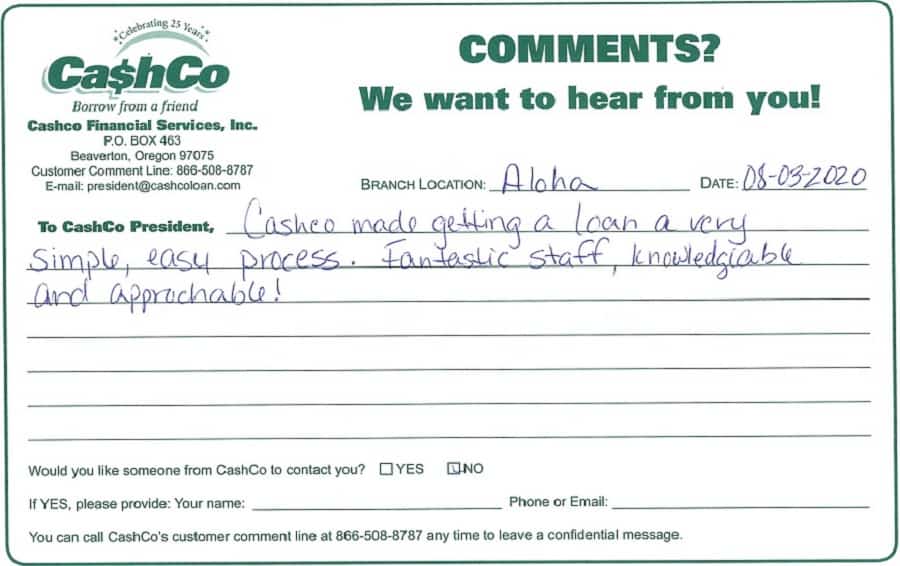 Celebrating 25 Years
Ca$hCo
Borrow from a friend
Cashco Financial Services, Inc.
P.O. BOX 463
Beaverton, Oregon 97075
Customer Comment Line: 866-508-8787
E-mail: president@cashcoloan.com
COMMENTS?
We want to hear from you!
BRANCH LOCATION: Aloha DATE: 08-03-2020
To CashCo President, Cashco made getting a loan a very
simple, easy process. Fantastic staff, knowledgiable
and approchable!
Would you like someone from CashCo to contact you? YES NO
If YES, please provide: Your name: Phone or Email:
You can call CashCo's customer comment line at 866-508-8787 any time to leave a confidential message.